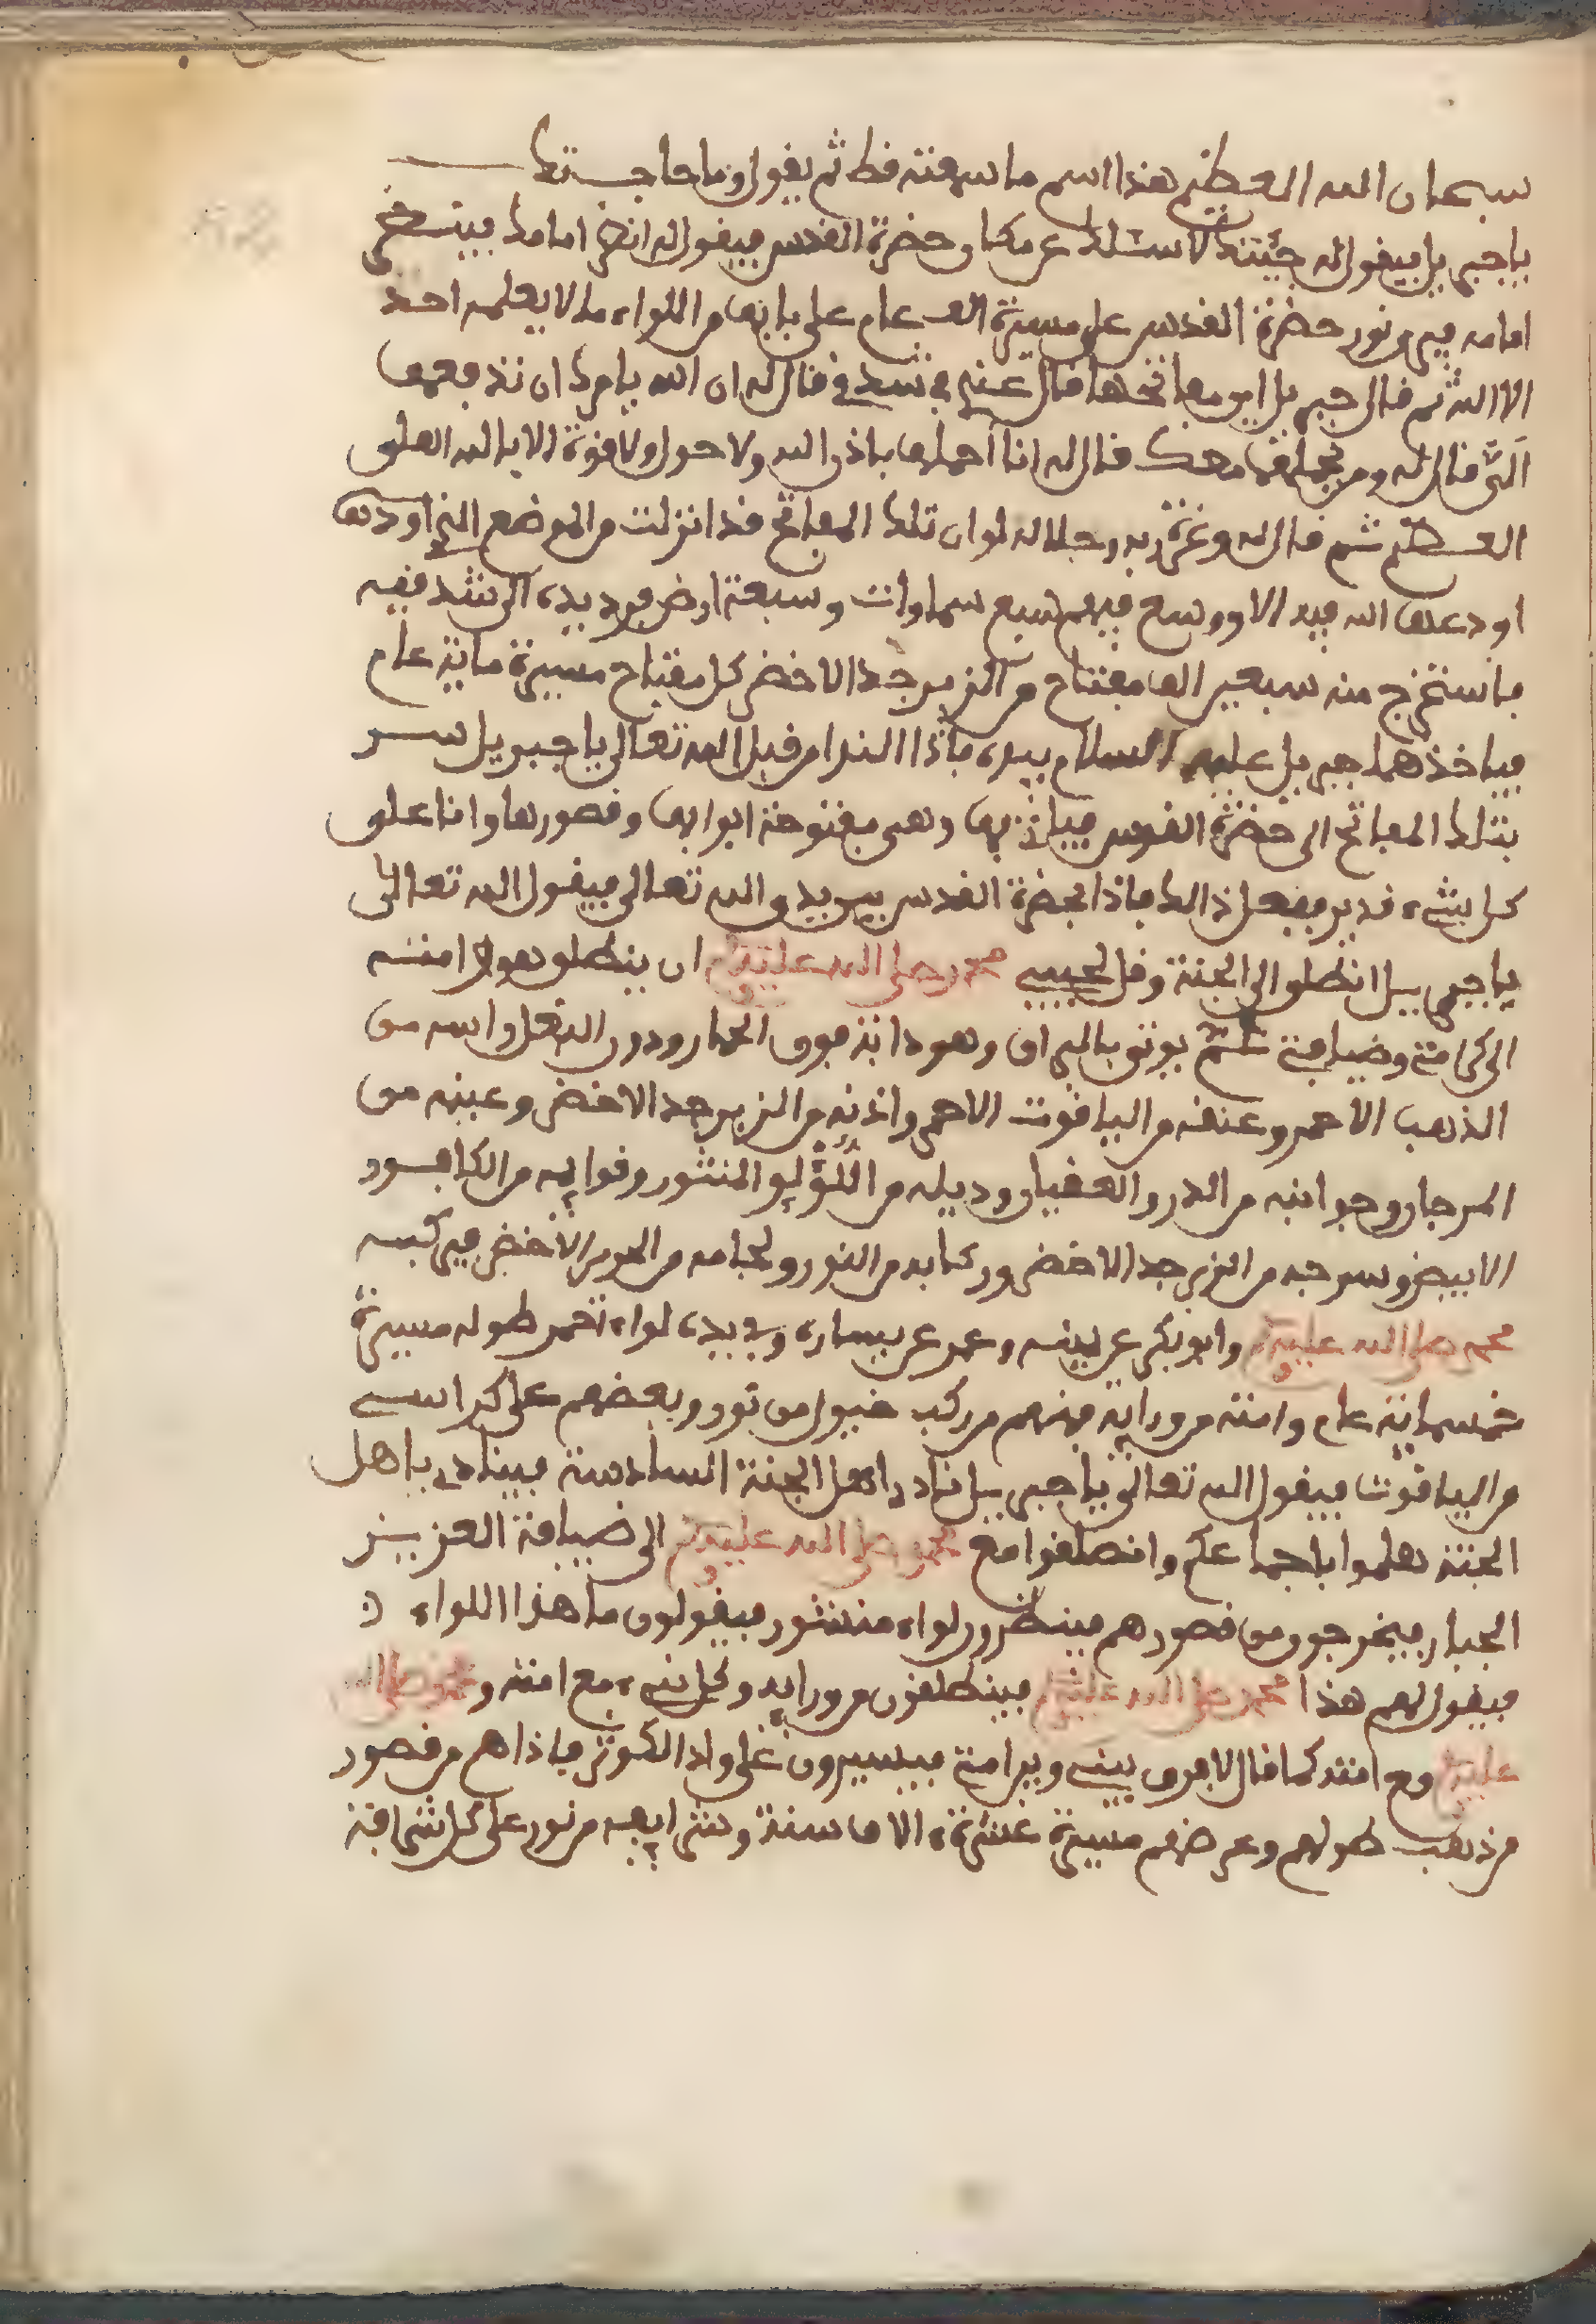 سبحان الله العظيم هذا اسم ما سمعته قط ثم يقول وما حاجتك
يا جبريل فيقول له جيتك لاسئلك عن مكان حضرة القدس فيقول له انظر امامك فينظر
امامه فيرى نور حضرة القدس على مسيرة الف عام على بابها من اللواء ما لا يعلمه احد
الا الله ثم قال جبريل اين مفاتحها قال عني في شدفي قال له ان الله يامرك ان تدفعهم
الي قال له ومن يحملهم معك قال له انا احملها باذن الله ولا حول ولا قوة الا بالله العلي
العظيم ثم قال له وعزة ربي وجلاله لو ان تلك المفاتح قد انزلت من الموضع الذي اودعها
اودعها الله فيه الا ووسع فيهم سبع سماوات وسبعة ارض فيرد يده الى شدفيه
فاستخرج منه سبعين الف مفتاح من الزبرجد الاخضر كل مفتاح مسيرة ماية عام
فياخذهما جبريل عليه السلام بيده فاذا النداء من قبل الله تعالى يا جبريل سر
بتلك المفاتح الى حضرة القدس فياتي بها وهي مفتوحة ابوابها وقصورها وانا على
كل شيء قدير فيفعل ذالك فاذا بحضرة القدس بين يدي الله تعالى فيقول الله تعالى
يا جبريل انطلق الى الجنة وقل لحبيبي محمد صلى الله عليه وسلم ان ينطلق هو وامته
الى كرامتي وضيافتي ثم يوتى بالبراق وهو دابة فوق الحمار ودون البغل راسه من
الذهب الاحمر وعنقه من الياقوت الاحمر واذنيه من الزبرجد الاخضر وعينيه من
المرجان وجوانبه من الدر والعقيان وذيله من اللؤلؤ المنثور وقوايمه من الكافور
الابيض وسرجه من الزبرجد الاخضر وركابه من النور ولجامه من الحرير الاخضر فيركبه
محمد صلى الله عليه وسلم وابوبكر عن يمينه وعمر عن يساره وفي يده لواء الحمد طوله مسيرة
خمسماية عام وامته من ورايه فمنهم من ركب خيول من نور وبعضهم على كراسي
من الياقوت فيقول الله تعالى يا جبريل نادي اهل الجنة السادسة فينادي يا اهل
الجنة هلموا باجماعكم وانطلقوا مع محمد صلى الله عليه وسلم الى ضيافة العزيز
الجبار فيخرجون من قصورهم فينظرون لواء منشور فيقولون ما هذا اللواء
فيقول لهم هذا محمد صلى الله عليه وسلم فينطلقون من ورايه وكل نبيء مع امته ومحمد صلى الله
عليه وسلم مع امته كما قال لا فرق بيني وبين امتي فيسيرون على واد الكوثر فاذا هم من قصور
من ذهب طولهم وعرضهم مسيرة عشرة الاف سنة وشراريفه من نور على كل شرافة